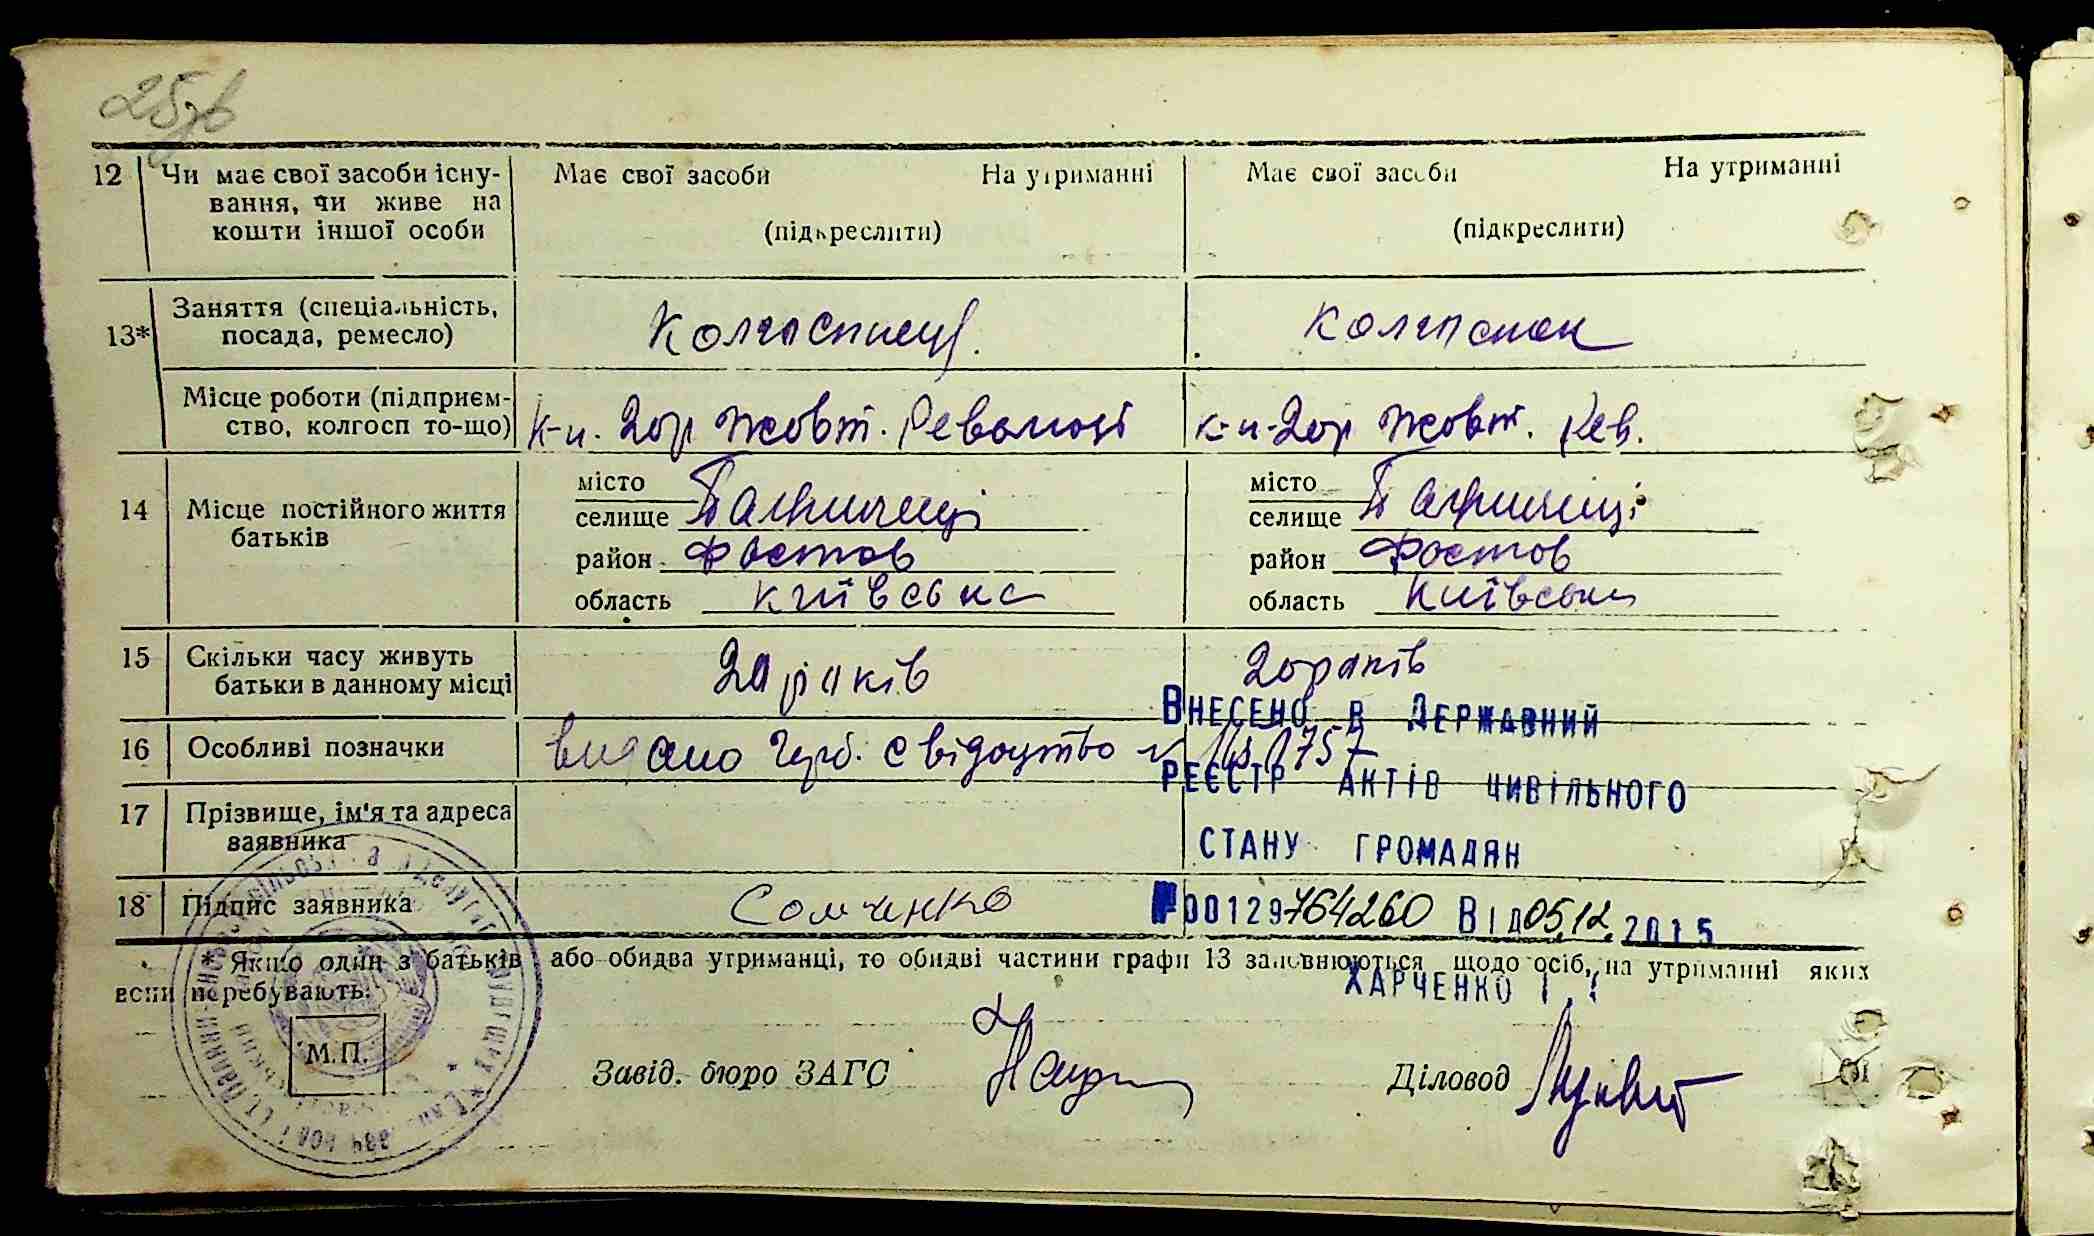 25зв
12 Чи має свої засоби існу- Має свої засоби На утриманні Має свої засоби На утриманні
вання, чи живе на
кошти іншої особи (підкреслити) (підкреслити)
13* Заняття (спеціальність, посада, ремесло) Колгоспниц. колгоспник
Місце роботи (підприєм-
ство, колгосп то-що) к-п. 20р Жовт. Революції к-п-20р Жовт. Рев.
14 Місце постійного життя
батьків
місто місто
селище селище
район Фастов район Фастов
область Київська область Київська
15 Скільки часу живуть
батьки в данному місці 20 років 20 років
ВНЕСЕНО В ДЕРЖАВНИЙ
16 Особливі позначки видано свідоцтво
РЕЄСТР АКТІВ ЦИВІЛЬНОГО
17 Прізвище, ім'я та адреса
заявника
СТАНУ ГРОМАДЯН
18 Підпис заявника Сомченко
№00129764260 ВІД 05.12.2015
* Якщо один з батьків або обидва утриманці, то обидві частини графи 13 заповнюються щодо осіб, на утриманні яких
вони перебувають.
ХАРЧЕНКО І.
М.П.
Завід. бюро ЗАГС Діловод